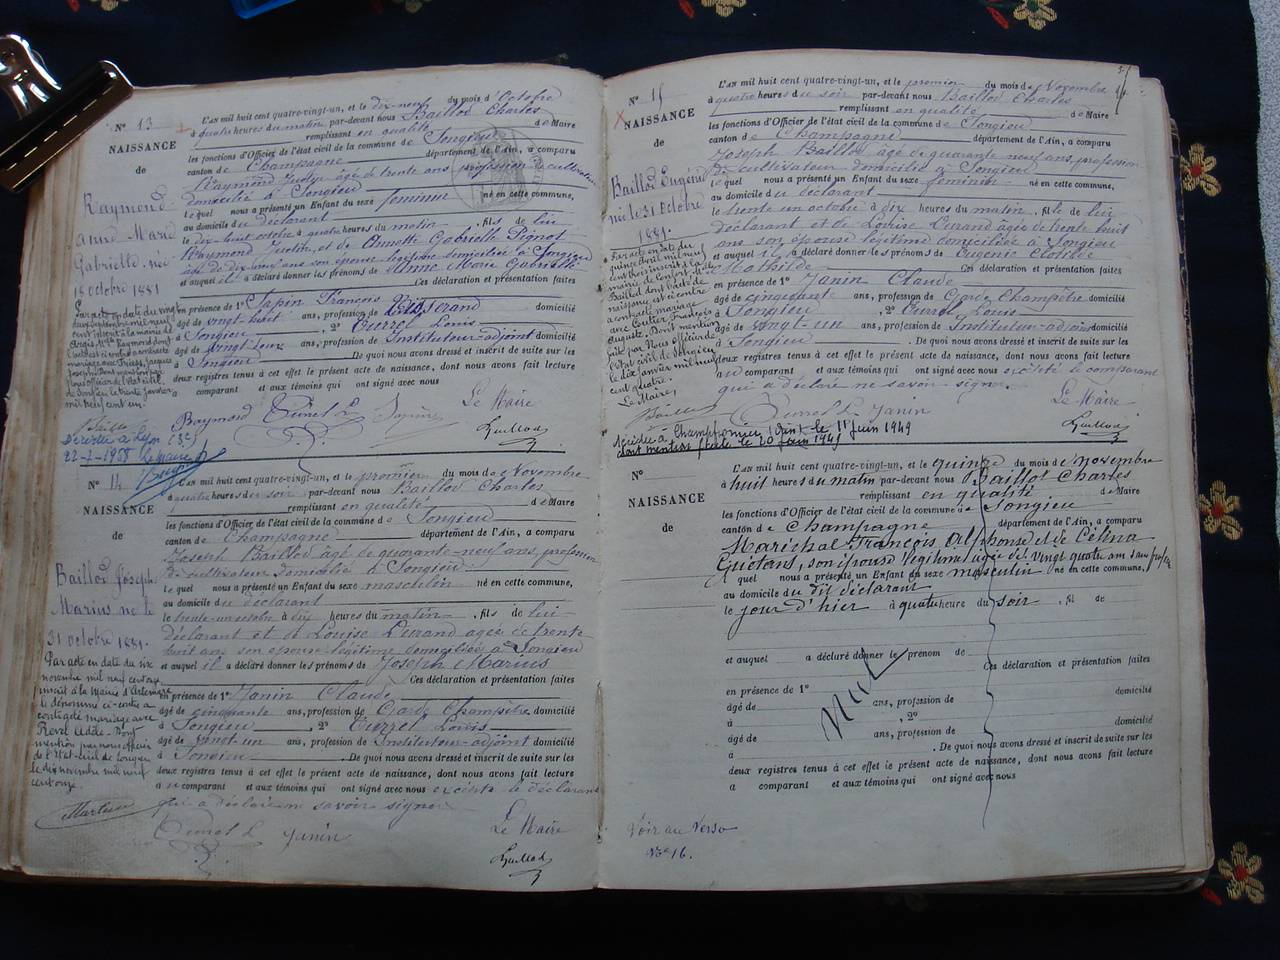 N° 13
NAISSANCE
de
Raymond
Anne Marie
Gabrielle née
18 octobre 1881
L'AN mil huit cent quatre-vingt-un, et le dix-neuf du mois d'Octobre
à quatre heures du matin par-devant nous Baillod Charles
remplissant en qualité de Maire
les fonctions d'Officier de l'état civil de la commune de Songieu
canton de Champagne département de l'Ain, a comparu
Raymond Justin âgé de trente ans, profession de cultivateur
domicilié à Songieu
lequel nous a présenté un Enfant du sexe féminin né en cette commune,
au domicile du déclarant
le dix-huit octobre à quatre heures du matin, fils de lui
Raymond Justin, et de Annette Gabrielle Pignot
âgée de dix-neuf ans son épouse légitime domiciliée à Songieu
et auquel il a déclaré donner les prénoms de Anne Marie Gabrielle
Ces déclaration et présentation faites
en présence de 1° Tapin François
âgé de vingt-huit ans, profession de Tisserand domicilié
à Songieu, 2° Turrel Louis
âgé de vingt-un ans, profession de Instituteur-adjoint domicilié
à Songieu De quoi nous avons dressé et inscrit de suite sur les
deux registres tenus à cet effet le présent acte de naissance, dont nous avons fait lecture
a comparant et aux témoins qui ont signé avec nous
Raymond Turrel L Tapin Le Maire
Baillod
Décédée à Lyon (3e)
22-2-1958 Le Maire
N° 14
NAISSANCE
de
Baillod Joseph
Marius né le
31 octobre 1881.
Par acte en date du six
novembre mil neuf cent onze
inscrit à la Mairie d'Artemare
le dénommé ci-contre a
contracté mariage avec
Revel Adèle. Dont
mention par nous officier
de l'Etat-Civil de Songieu
le dix novembre mil neuf
cent onze.
Martin
L'AN mil huit cent quatre-vingt-un, et le premier du mois de Novembre
à quatre heures du soir par-devant nous Baillod Charles
remplissant en qualité de Maire
les fonctions d'Officier de l'état civil de la commune de Songieu
canton de Champagne département de l'Ain, a comparu
Joseph Baillod âgé de quarante-neuf ans, profession
de cultivateur domicilié à Songieu
le quel nous a présenté un Enfant du sexe masculin né en cette commune,
au domicile du déclarant
le trente-un octobre à dix heures du matin, fils de lui
déclarant et de Louise Durand âgée de trente
huit ans son épouse légitime domiciliée à Songieu
et auquel il a déclaré donner les prénoms de Joseph Marius
Ces déclaration et présentation faites
en présence de 1° Janin Claude
âgé de cinquante ans, profession de Garde Champêtre domicilié
à Songieu, 2° Turrel Louis
âgé de vingt-un ans, profession de Instituteur-adjoint domicilié
à Songieu. De quoi nous avons dressé et inscrit de suite sur les
deux registres tenus à cet effet le présent acte de naissance, dont nous avons fait lecture
au comparant et aux témoins qui ont signé avec nous excepté le déclarant
qui a déclaré ne savoir signer
Turrel L Janin Le Maire
Baillod
N° 15
NAISSANCE
de
Baillod Eugénie
née le 31 Octobre
1881.
L'AN mil huit cent quatre-vingt-un, et le premier du mois de Novembre
à quatre heures du soir par-devant nous Baillod Charles
remplissant en qualité de Maire
les fonctions d'Officier de l'état civil de la commune de Songieu
canton de Champagne département de l'Ain, a comparu
Joseph Baillod âgé de quarante neuf ans, profession
de cultivateur domicilié à Songieu
le quel nous a présenté un Enfant du sexe féminin né en cette commune,
au domicile du déclarant
le trente un octobre à dix heures du matin, fille de lui
déclarant et de Louise Durand âgée de trente huit
ans son épouse légitime domiciliée à Songieu
et auquel il a déclaré donner les prénoms de Eugénie Clotilde
Mathilde Ces déclaration et présentation faites
en présence de 1° Janin Claude
âgé de cinquante ans, profession de Garde Champêtre domicilié
à Songieu, 2° Turrel Louis
âgé de vingt-un ans, profession de Instituteur-adjoint domicilié
à Songieu. De quoi nous avons dressé et inscrit de suite sur les
deux registres tenus à cet effet le présent acte de naissance, dont nous avons fait lecture
au comparant et aux témoins qui ont signé avec nous excepté le comparant
qui a déclaré ne savoir signer.
Turrel L Janin Le Maire
Baillod
Décédée à Champfromier (Ain) le 11 juin 1949
dont mention faite le 20 juin 1949
N°
NAISSANCE
de
L'AN mil huit cent quatre-vingt-un, et le quinze du mois de novembre
à huit heures du matin par-devant nous Baillot Charles
remplissant en qualité de Maire
les fonctions d'Officier de l'état civil de la commune de Songieu
canton de Champagne département de l'Ain, a comparu
Maréchal François Alphonse et de Célina
Guétant, son épouse légitime âgée de vingt quatre ans
quel nous a présenté un Enfant du sexe masculin né en cette commune,
au domicile du dit déclarant
le jour d'hier à quatre heure du soir, fil de
et auquel a déclaré donner le prénom de
Ces déclaration et présentation faites
en présence de 1°
âgé de ans, profession de domicilié
à , 2°
âgé de ans, profession de domicilié
à . De quoi nous avons dressé et inscrit de suite sur les
deux registres tenus à cet effet le présent acte de naissance, dont nous avons fait lecture
a comparant et aux témoins qui ont signé avec nous
Nul
Voir au Verso
N° 16.